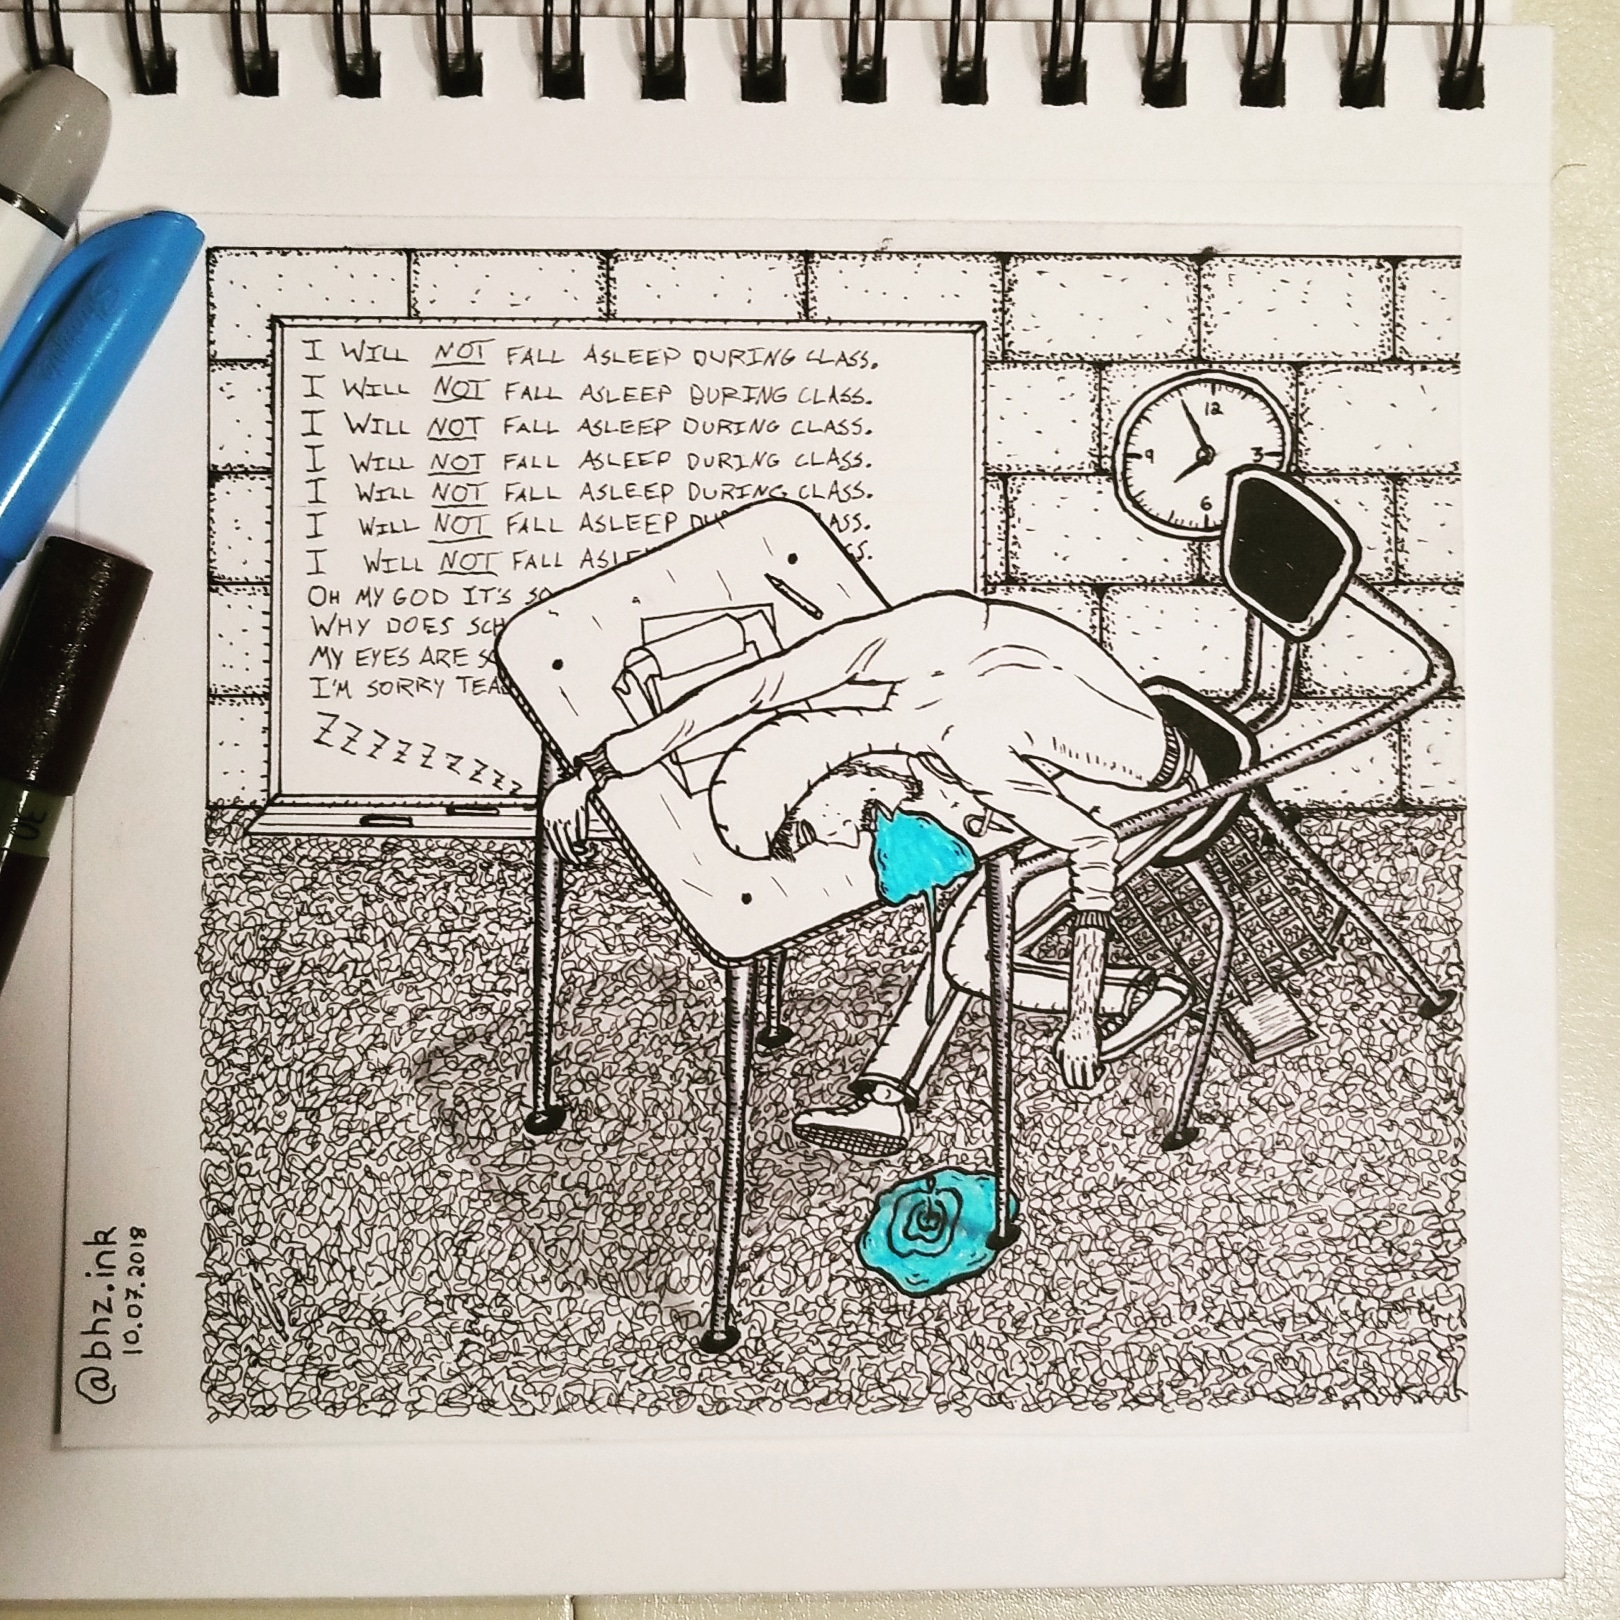 I WILL NOT FALL ASLEEP DURING CLASS.
I WILL NOT FALL ASLEEP DURING CLASS.
I WILL NOT FALL ASLEEP DURING CLASS.
I WILL NOT FALL ASLEEP DURING CLASS.
I WILL NOT FALL ASLEEP DURING CLASS.
I WILL NOT FALL ASLEEP DU ASS.
I WILL NOT FALL ASLE S.
OH MY GOD IT'S SO
WHY DOES SCH
MY EYES ARE SO
I'M SORRY TEA
ZZZZZZZZZZ
12
9 3
6
@bhz.ink
10.07.2018